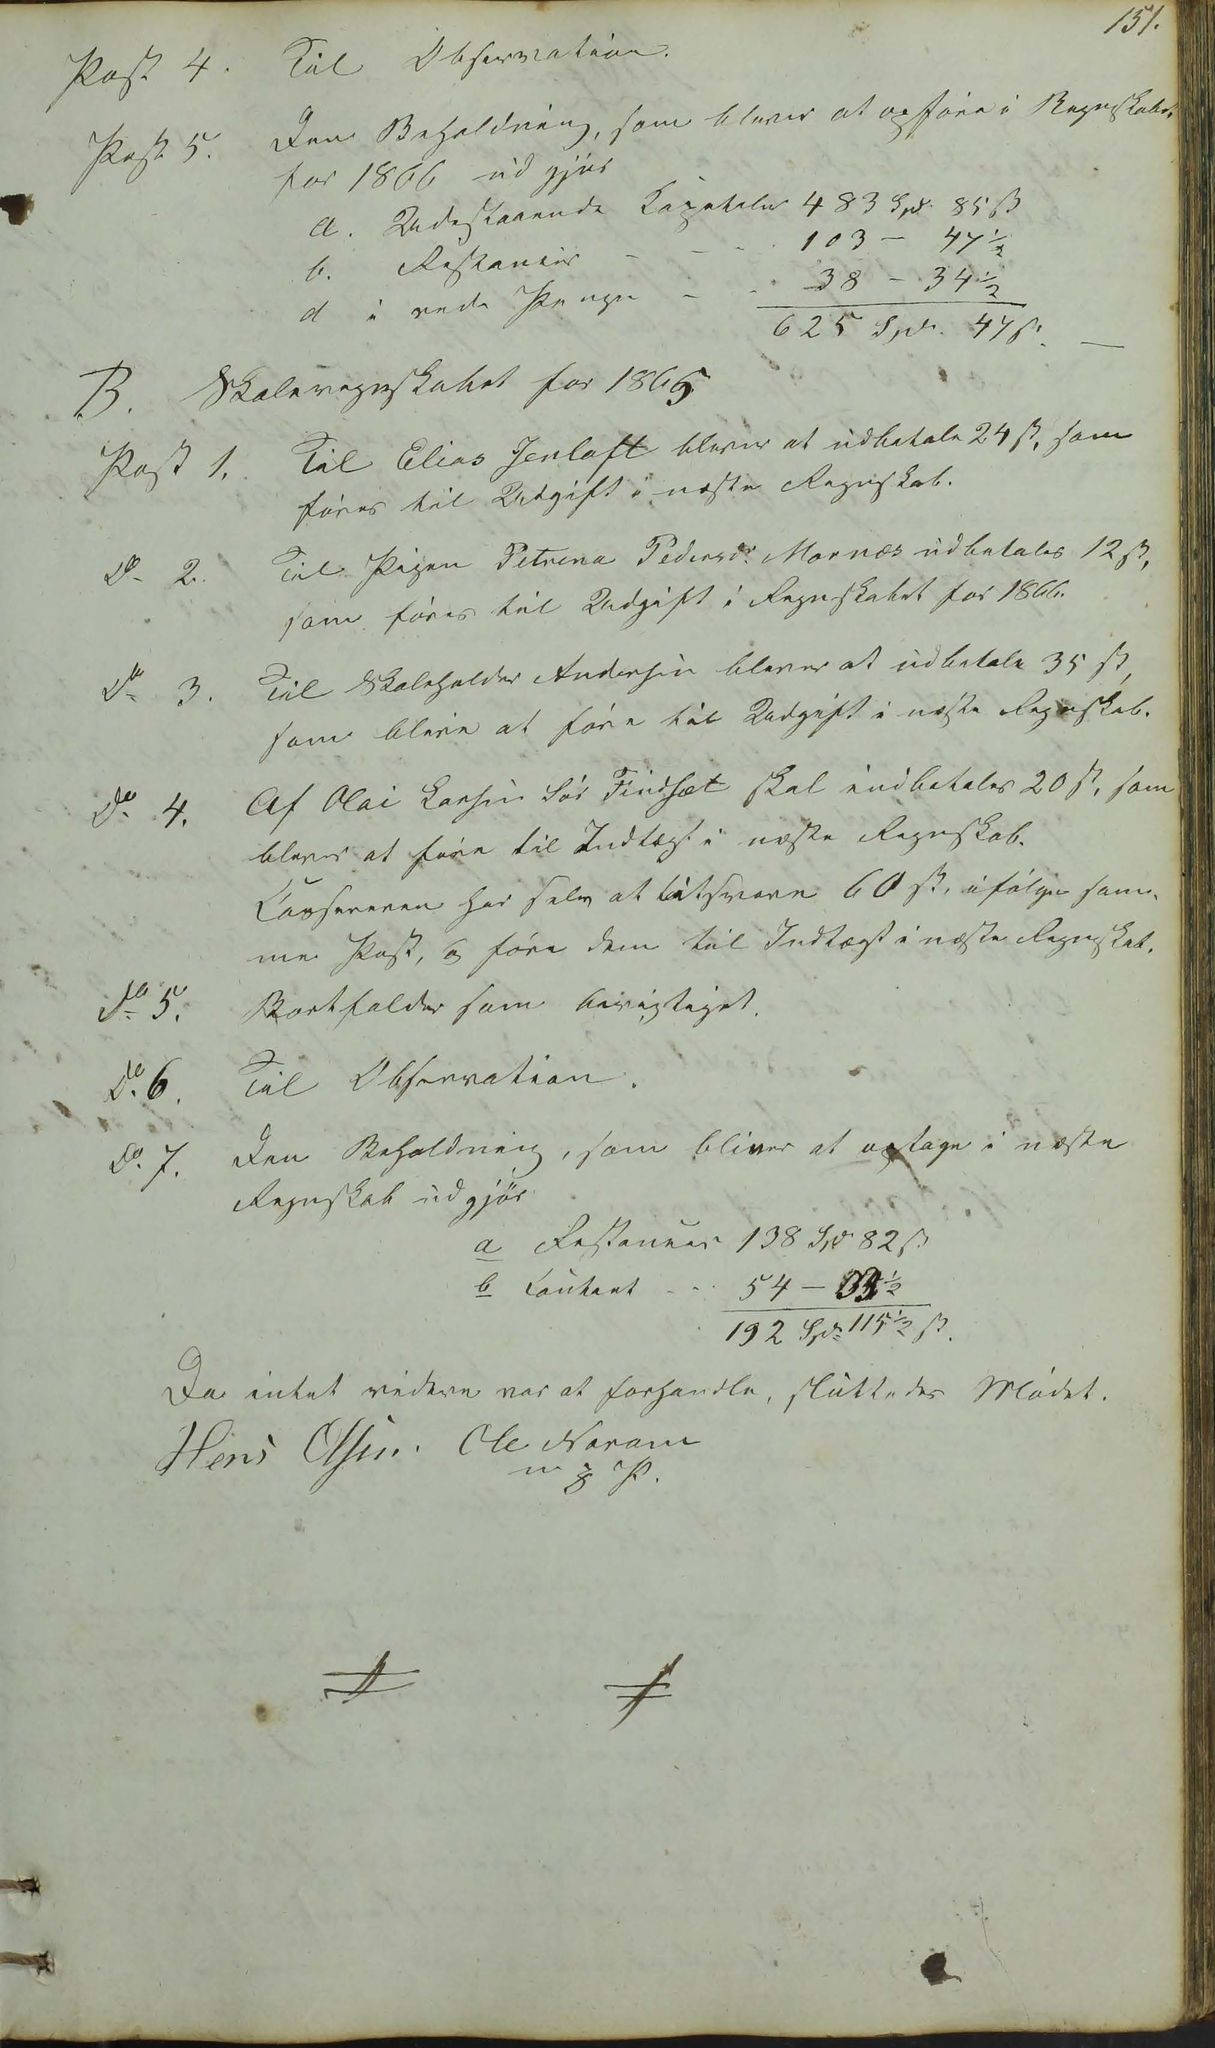 151.
Post 4. Til Observation.
Post 5. Den Beholdning, som bliver at opføre i Regnskabet
for 1866 udgjør
a. Udestaaende Capitaler 483 Spd. 85 ß
b. Restancer - - - 103 - 47 1/2
d i rede Penge - - 38 - 34 1/2
625 Spd. 47 ß. —
B. Skoleregnskabet for 1865
Post 1. Til Elias Jenloft bliver at udbetale 24 ß, som
føres til Udgift i næste Regnskab.
Do 2. Til Pigen Petrina Pedersdr. Mornæs udbetales 12 ß,
som føres til Udgift i Regnskabet for 1866.
Do 3. Til Skoleholder Andersen bliver at udbetale 35 ß,
som bliver at føre til Udgift i næste Regnskab.
Do 4. Af Olai Larsen Sør Findsæt skal indbetales 20 ß, som
bliver at føre til Indtægt i næste Regnskab.
Kassereren har selv at tilsvare 60 ß. ifølge sam-
me Post, og føre dem til Indtægt i næste Regnskab.
Do 5. Bortfalder som berigtiget.
Do 6. Til Observation.
Do 7. Den Beholdning, som bliver at optage i næste
Regnskab udgjør
a Restancer 138 Spd 82 ß
b Contant - - 54 - 33 1/2
192 Spd 115 1/2 ß.
Da intet videre var at forhandle, sluttedes Mødet.
Hens Olsen. Ole Norum
m. p. P.